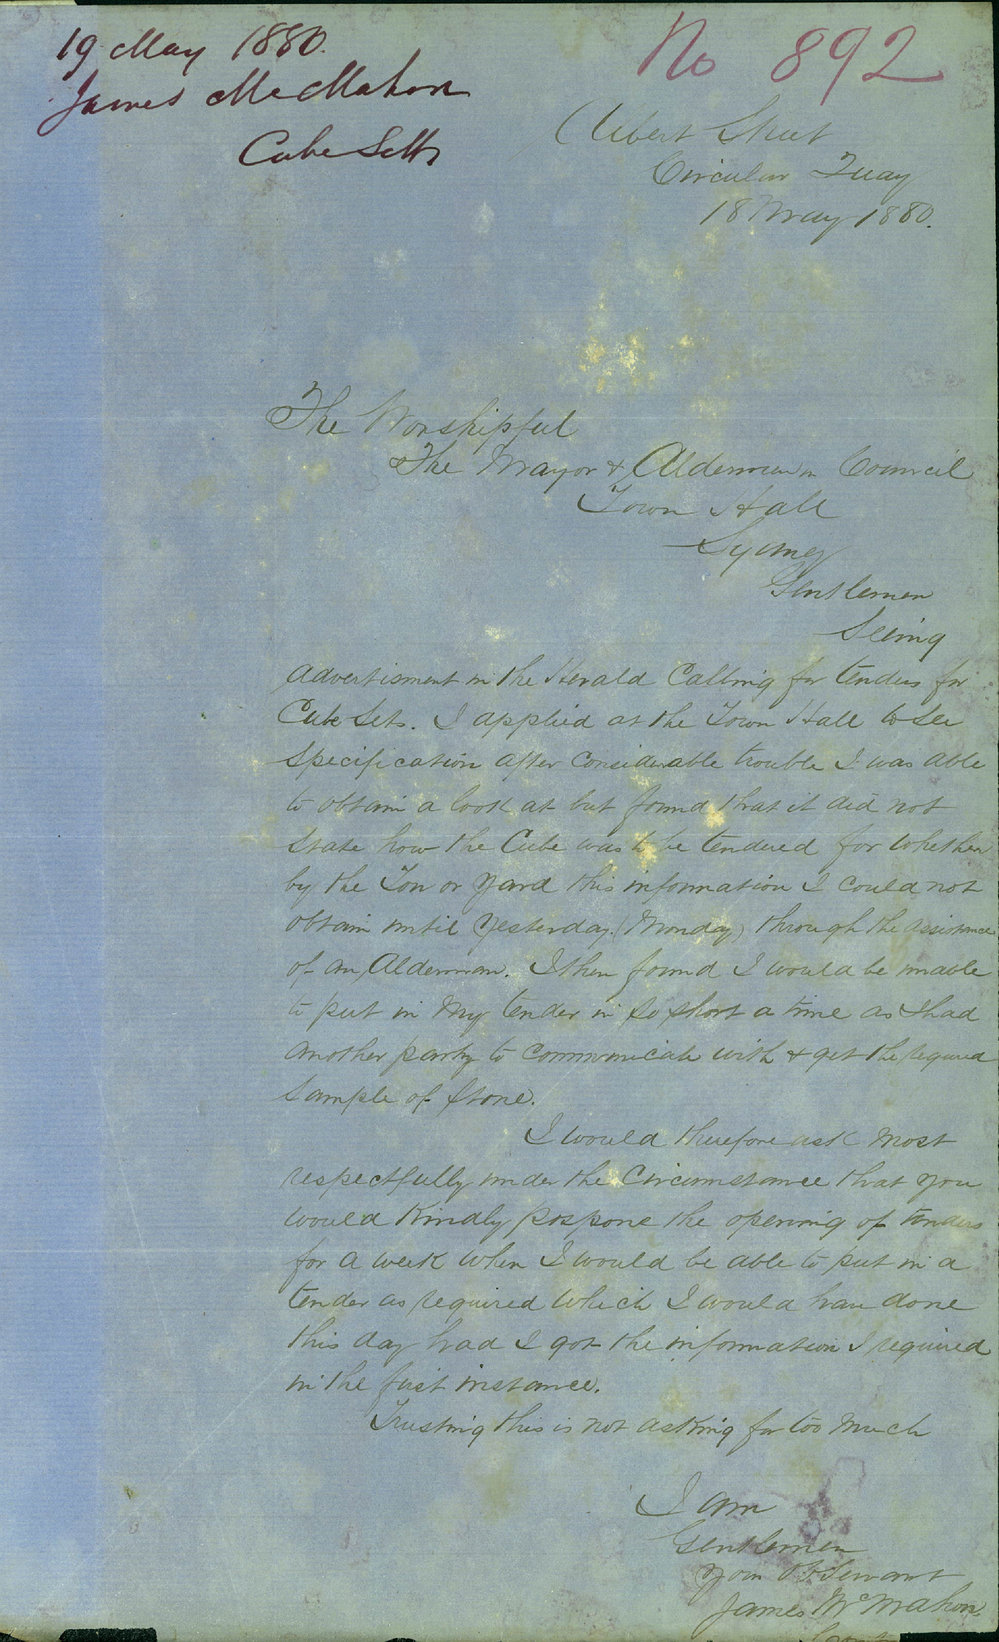 19 May 1880.
James McMahon
Cube Setts
No 892
Albert Street
Circular Quay
18 May 1880.
The Worshipful
The Mayor & Aldermen in Council
Town Hall
Sydney
Gentlemen
Seeing
advertisment in the Herald Calling for tenders for
Cube Sets. I applied at the Town Hall to see
specification after considerable trouble I was able
to obtain a look at but found that it did not
state how the Cube was to be tendered for whether
by the Ton or yard this information I could not
obtain until yesterday (Monday) through the assistance
of an Alderman. I then found I would be unable
to put in my tender in so short a time as I had
another party to communicate with & get the required
sample of stone.
I would therefore ask most
respectfully under the Circumstance that you
would Kindly pospone the opening of tenders
for a week when I would be able to put in a
tender as required which I would have done
this day had I got the information I required
in the first instance.
Trusting this is not asking for too much
I am
Gentlemen
your Ob Servant
James McMahon